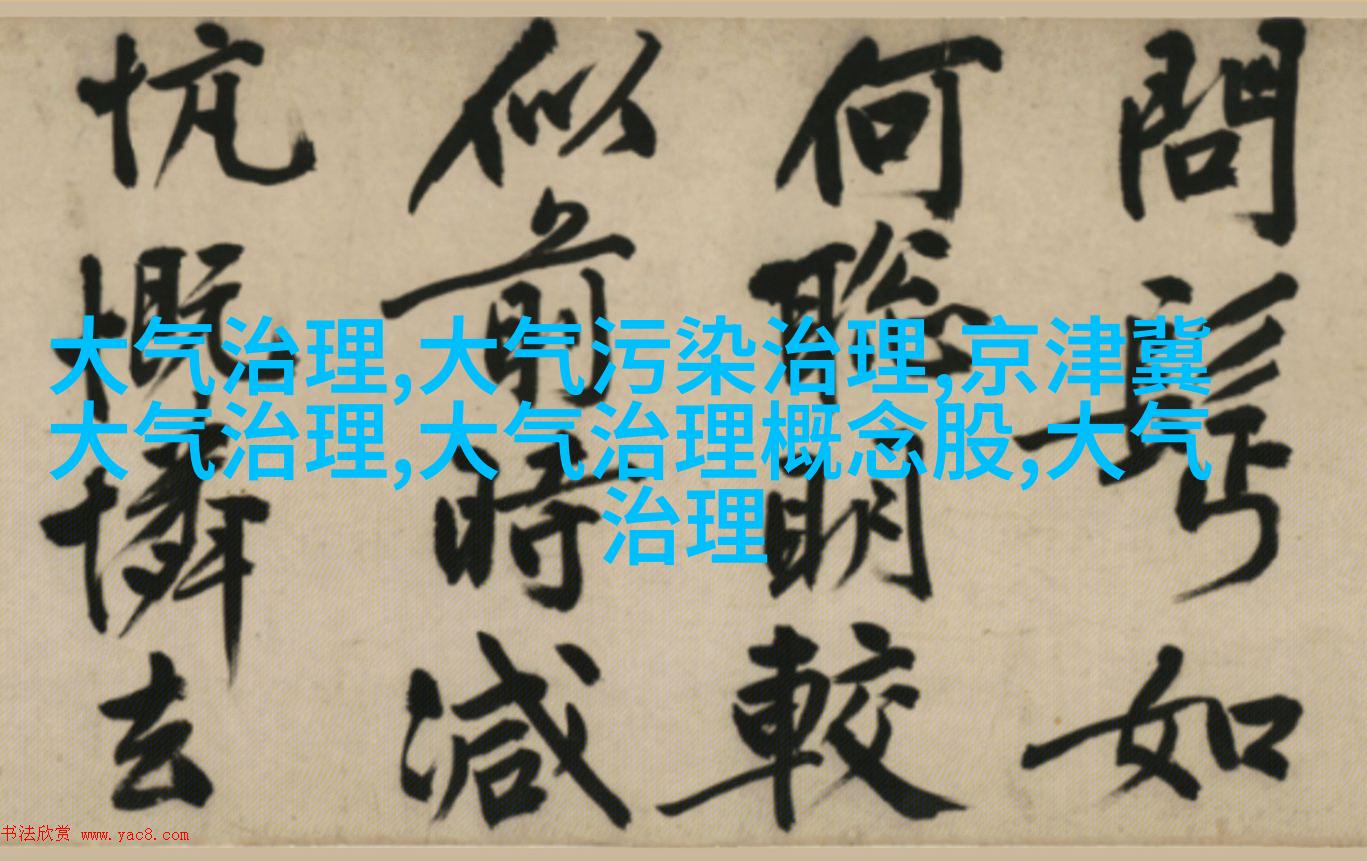 問如
何聰明較
似前時減
忼慨憐去
大气治理,大气污染治理,京津冀
大气治理,大气治理概念股,大气
治理
书法欣赏 www.yac8.com